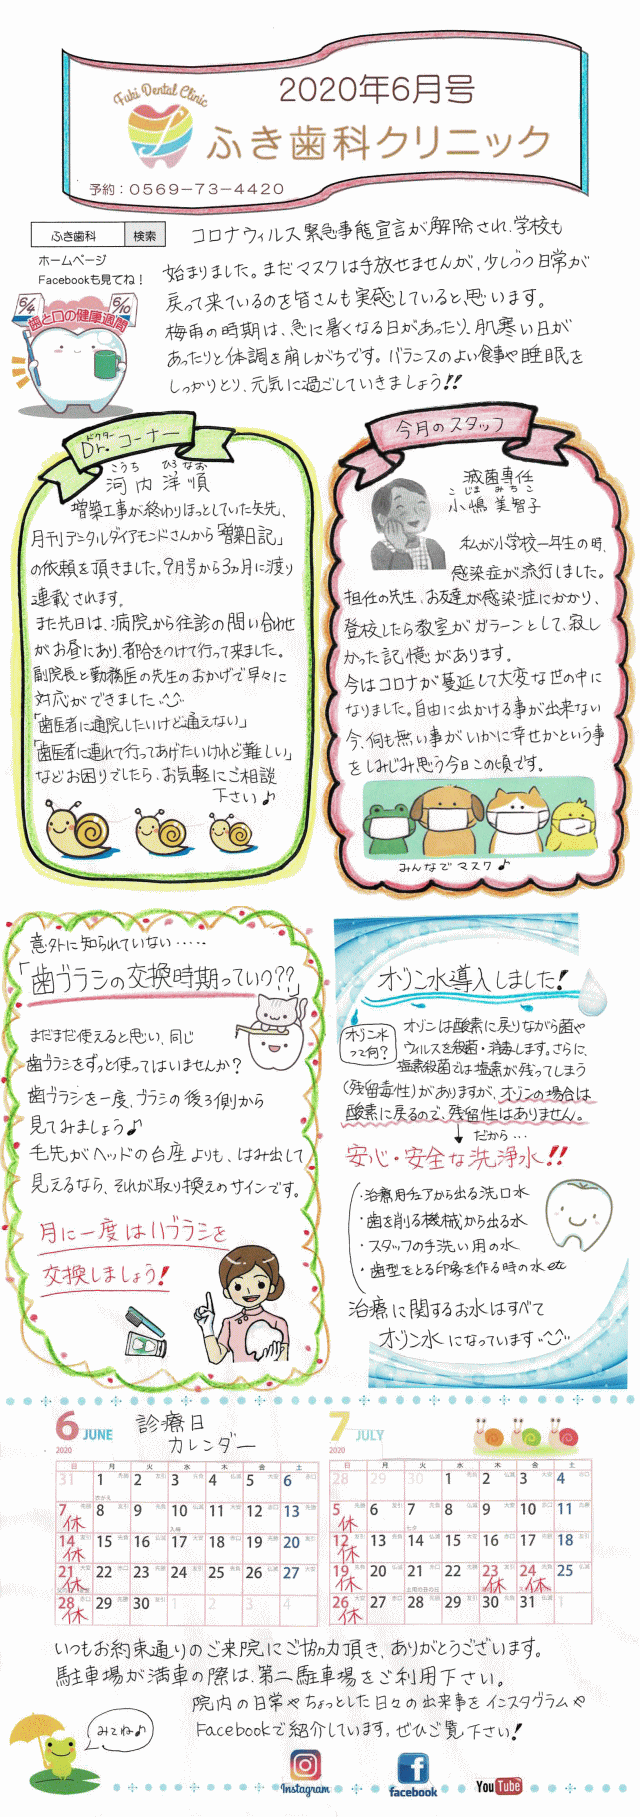 2020年6月号
Fuki Dental Clinic
ふき歯科クリニック
予約：0569-73-4420
ふき歯科 検索
ホームページ
Facebookも見てね！
6/4 6/10
歯と口の健康週間
コロナウィルス緊急事態宣言が解除され、学校も
始まりました。まだマスクは手放せませんが、少しづつ日常が
戻って来ているのを皆さんも実感していると思います。
梅雨の時期は、急に暑くなる日があったり、肌寒い日が
あったりと体調を崩しがちです。バランスのよい食事や睡眠を
しっかりとり、元気に過ごしていきましょう!!
ドクター
Dr.コーナー
こうち ひろなお
河内 洋順
増築工事が終わりほっとしていた矢先、
月刊デンタルダイアモンドさんから「増築日記」
の依頼を頂きました。9月号から3ヵ月に渡り
連載されます。
また先日は、病院から往診の問い合わせ
がお昼にあり、都合をつけて行って来ました。
副院長と勤務医の先生のおかげで早々に
対応ができました
「歯医者に通院したいけど通えない」
「歯医者に連れて行ってあげたいけれど難しい」
などお困りでしたら、お気軽にご相談
下さい♪
今月のスタッフ
滅菌専任
こじま みちこ
小嶋 美智子
私が小学校一年生の時、
感染症が流行しました。
担任の先生、お友達が感染症にかかり、
登校したら教室がガラーンとして、寂し
かった記憶があります。
今はコロナが蔓延して大変な世の中に
なりました。自由に出かける事が出来ない
今、何も無い事がいかに幸せかという事
をしみじみ思う今日この頃です。
みんなでマスク♪
意外に知られていない・・・・・
「歯ブラシの交換時期っていつ??」
まだまだ使えると思い、同じ
歯ブラシをずっと使ってはいませんか？
歯ブラシを一度、ブラシの後ろ側から
見てみましょう♪
毛先がヘッドの台座よりも、はみ出して
見えるなら、それが取り換えのサインです。
月に一度はハブラシを
交換しましょう！
オゾン水導入しました！
オゾン水
って何？
オゾンは酸素に戻りながら菌や
ウィルスを殺菌・消毒します。さらに、
塩素殺菌では塩素が残ってしまう
(残留毒性)がありますが、オゾンの場合は
酸素に戻るので、残留性はありません。
↓だから…
安心・安全な洗浄水!!
・治療用チェアから出る洗口水
・歯を削る機械から出る水
・スタッフの手洗い用の水
・歯型をとる印象を作る時の水etc
治療に関するお水はすべて
オゾン水になっています
6 JUNE
2020
診療日
カレンダー
日 月 火 水 木 金 土
31 1 2 3 4 5 6
7 8 9 10 11 12 13
休
14 15 16 17 18 19 20
休
21 22 23 24 25 26 27
休
28 29 30 1 2 3 4
休
7 JULY
2020
日 月 火 水 木 金 土
28 29 30 1 2 3 4
5 6 7 8 9 10 11
休
12 13 14 15 16 17 18
休
19 20 21 22 23 24 25
休 休 休
26 27 28 29 30 31 1
休
いつもお約束通りのご来院にご協力頂き、ありがとうございます。
駐車場が満車の際は、第二駐車場をご利用下さい。
院内の日常やちょっとした日々の出来事をインスタグラムや
Facebookで紹介しています。ぜひご覧下さい！
みてね♪
Instagram
facebook
YouTube